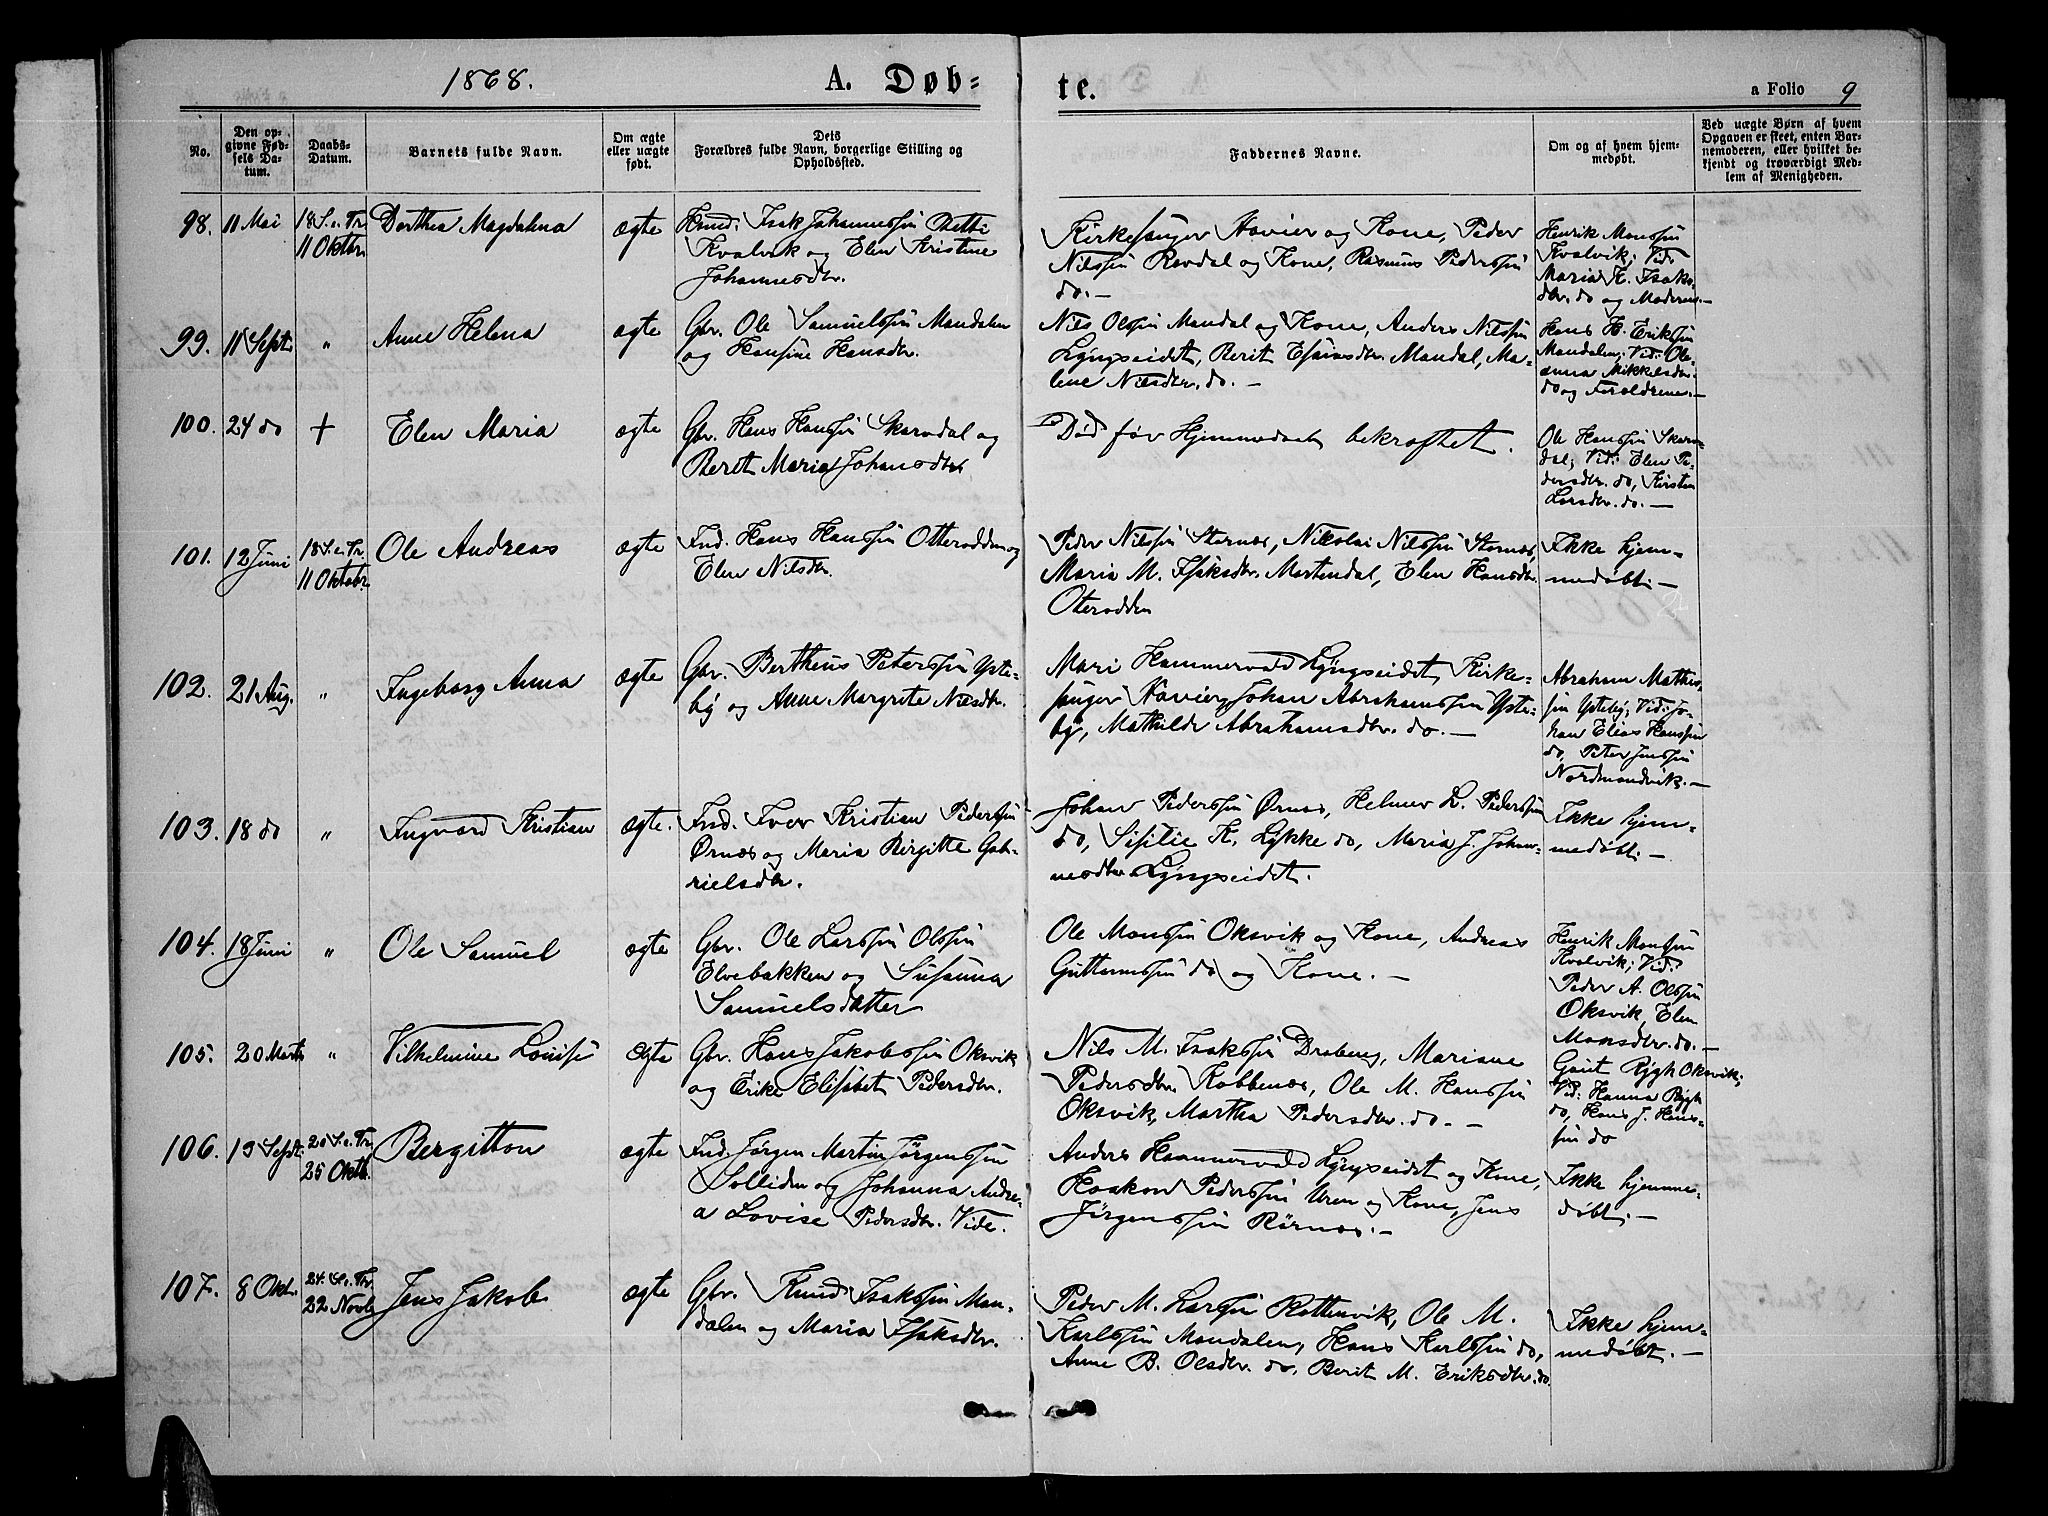 1868.
A. Døb-
te.
a Folio 9
No.
Den op-
givne Fød-
sels Da-
tum.
Daabs-
Datum.
Barnets fulde Navn.
Om ægte
eller uægte
født.
Dets
Forældres fulde Navn, borgerlige Stilling og
Opholdssted.
Faddernes Navne.
Om og af hvem hjem-
medøbt.
Ved uægte Børn af hvem
Opgaven er skeet, enten Bar-
nemoderen, eller hvilket be-
kjendt og troværdigt Med-
lem af Menigheden.
98.
11 Mai
18. S. e. Tr.
11 Oktbr.
Dorthea Magdalena
ægte
Isak Johannessen
Kvalvik og Elen Kristine
Johannesdtr.
Kirkesanger Xavier og Kone, Peder
Nilssen Rovdal og Kone, Rasmus Pederssen
do. –
Henrik Monssen
Kvalvik; Vid:
Maria K. Isaks-
dtr. do og Moderen. –
99.
11 Septr.
"
Anne Helena
ægte
Gbr. Ole Samuelssen Mandalen
og Hansine Hansdtr.
Nils Olssen Mandal og Kone, Anders Nilssen
Lyngseidet, Berit Esaiasdtr. Mandal, Ma-
lene Nilsdtr. do. –
Hans H. Erikssen
Mandalen; Vid: Ole-
anna Mikkelsdtr.
do og Forældrene. –
100.
24 do
+
Elen Maria
ægte
Gbr. Hans Hanssen Skardal og
Berit Maria Johansdtr.
Død før Hjemmedaab bekræftet.
Ole Hanssen Skar-
dal; Vid: Elen Pe-
dersdtr. do, Kirsten
Larsdtr. do. –
101.
12 Juni
18 S. e. Tr.
11 Oktobr.
Ole Andreas
ægte
Ind. Hans Hanssen Otterodden og
Elen Nilsdtr.
Peder Nilssen Stornæs, Nikolai Nilssen Stornæs,
Maria M. Isaksdtr. Mortendal, Elen Hansdtr.
Oterodden
Ikke hjem-
medøbt. –
102.
21 Aug.
"
Ingeborg Anna
ægte
Gbr. Bertheus Peterssen Yste-
by og Anne Margrete Nilsdtr.
Mari Hammervold Lyngseidet, Kirke-
sanger Xavier, Johan Abrahamssen Yste-
by, Mathilde Abrahamsdtr. do. –
Abraham Mathis-
sen Ysteby; Vid: Jo-
han Elias Hanssen
do, Peter Jenssen
Nordmandvik. –
103.
18 do
"
Ingvard Kristian
ægte.
Ind. Iver Kristian Pederssen
Ørnæs og Maria Birgitte Gab-
rielsdtr.
Johan Pederssen Ørnæs, Helmer L. Pederssen
do, Sisilie K. Lykke do, Maria J. Johan-
nesdtr. Lyngseidet.
Ikke hjem-
medøbt. –
104.
18 Juni
"
Ole Samuel
ægte
Gbr. Ole Larssen Olssen
Elvebakken og Susanna
Samuelsdatter
Ole Monssen Oksvik og Kone, Andreas
Guttormssen do og Kone. –
Henrik Monssen
Kvalvik; Vid:
Peder A. Olssen
Oksvik, Elen
Monsdtr. do. –
105.
20 Marts
"
Vilhelmine Louise
ægte
Gbr. Hans Jakobssen Oksvik
og Erike Elisabet Pedersdtr.
Nils M. Isakssen Draberg, Mariane
Pedersdtr. Kobbenæs, Ole M. Hanssen
Oksvik, Martha Pedersdtr. do. –
Gaut Rygh Oksvik;
Vid: Hanna Rygh
do, Hans J. Hans-
sen do
106.
13 Septr.
20 S. e. Tr.
25 Oktb.
Bergitton
ægte
Ind. Jørgen Martin Jørgenssen
Solliden og Johanna Andre-
a Lovise Pedersdtr. Vide.
Anders Hammervold Lyngseidet og Kone,
Haakon Pederssen Uren og Kone, Jens
Jørgenssen Rørnæs. –
Ikke hjemme-
døbt. –
107.
8 Okt.
24. S. e. Tr.
22 Novb.
Jens Jakob
ægte
Gbr. Knud Isakssen Man-
dalen og Maria Isaksdtr.
Peder M. Larssen Rottenvik, Ole M.
Karlssen Mandalen, Hans Karlssen do,
Anne B. Olsdtr. do, Berit M. Eriksdtr. do.
Ikke hjem-
medøbt. –